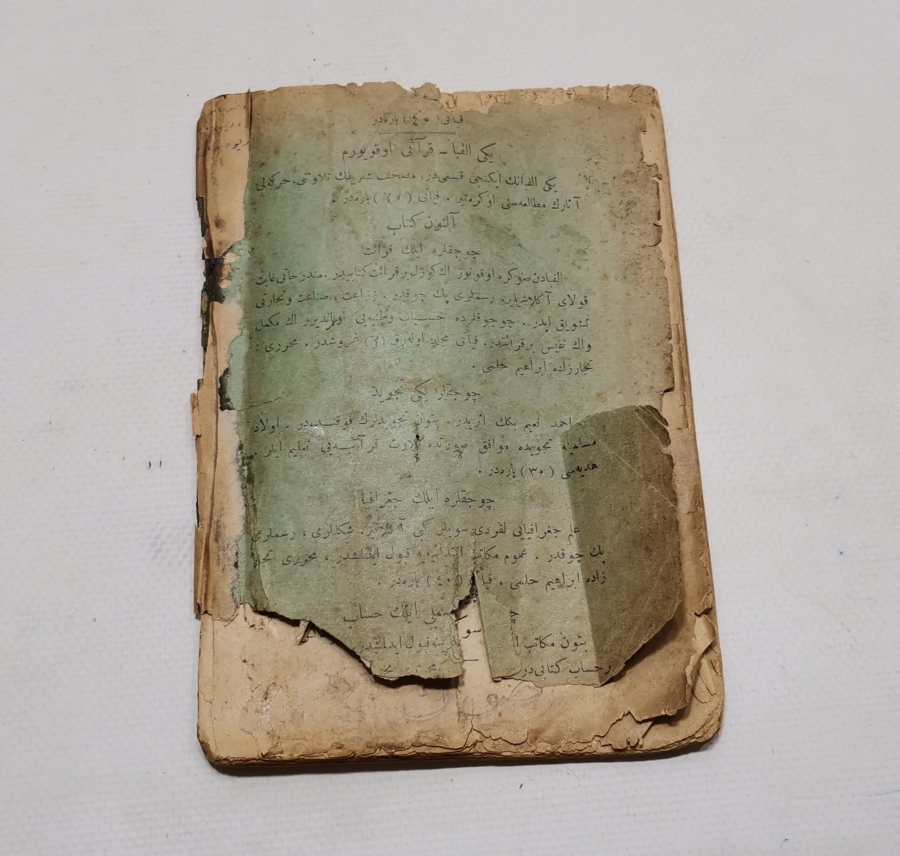 فیاتی (٤٠) پاره‌در
یكی الفبا ـ قرآنی اوقویورم
یكی الفبانك ایكنجی قسمی‌در. مصحف شریفك تلاوتی، حركه‌لی
آثارك مطالعه‌سنی اوكره‌تیر . فیاتی ( ) پاره‌در .
آلتون كتاب
چوجقلره ایلك قرائت
الفبادن صوكره اوقونور اك كوزل بر قرائت كتابیدر . مندرجاتی غایت
قولای آكلاشیلیر، رسملری پك چوقدر . زراعت ، صناعت و تجارتی
تشویق ایدر . چوجوقلرده حسیات وطنیه‌یی اویاندیریر اك مكمل
واك نفیس بر قرائتدر. فیاتی مجلد اوله‌رق ( ) غروشدر . محرری :
تجارزاده ابراهیم حلمی .
چوجقلره یكی تجوید
احمد نعیم بكك اثریدر . بتون تجویدلرك فوقنده‌در . اولاد
مسلمینه تجویده موافق صورتده تلاوت قرآنیه‌یی تعلیم ایلر .
هدیه‌سی (٣٠) پاره‌در .
چوجقلره ایلك جغرافیا
علم جغرافیایی لقردی سویلر كبی آكلاتیر. شكللری ، رسملری
پك چوقدر . عموم مكاتب ابتدائیه‌یه قبول ایدلمشدر ، محرری تجار
زاده ابراهیم حلمی . (٤٠) پاره‌در .
ایلك حساب
بتون مكاتب قبول ایدلمشدر
برحساب كتابی‌در